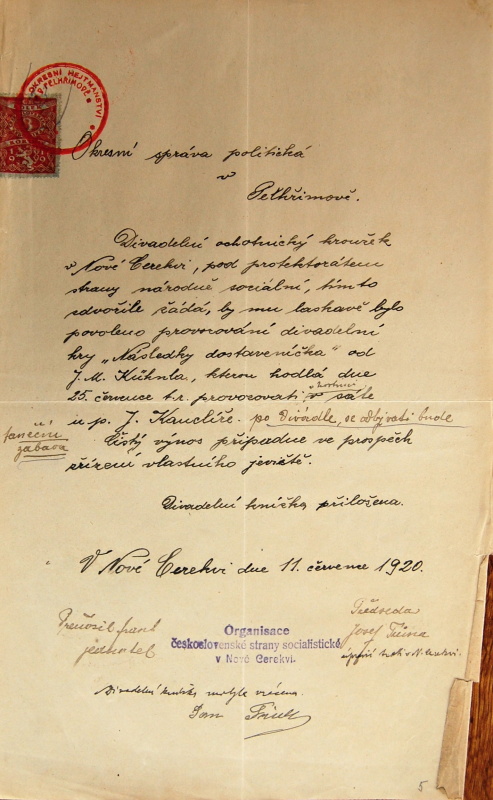 OKRESNÍ HEJTMANSTVÍ
V PELHŘIMOVĚ
Okresní správa politická
v
Pelhřimově.
Divadelní ochotnický kroužek
v Nové Cerekvi, pod protektorátem
strany národně sociální, tímto
zdvořile žádá, by mu laskavě bylo
povoleno provozování divadelní
hry „Následky dostaveníčka" od
J. M. Kühnla, kterou hodlá dne
25. července t.r. provozovati v sále
u p. J. Kanclíře. po Divádle, se odbývati bude
taneční
zábava
Čistý výnos připadne ve prospěch
zřízení vlastního jeviště.
Divadelní knížka přiložena.
V Nové Cerekvi dne 11. července 1920.
jednatel
Organisace
československé strany socialistické
v Nové Cerekvi.
Předseda
Josef
v N. Cerekvi.
Divadelní knížka vrácena.
5